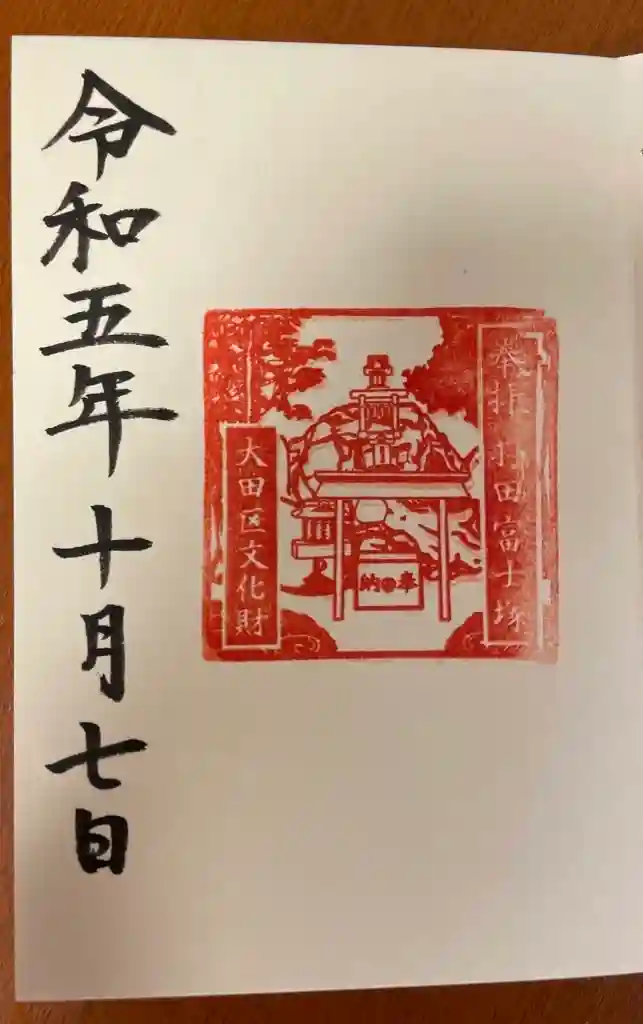 奉拝 羽田富士塚
奉納
大田区文化財
令和五年十月七日